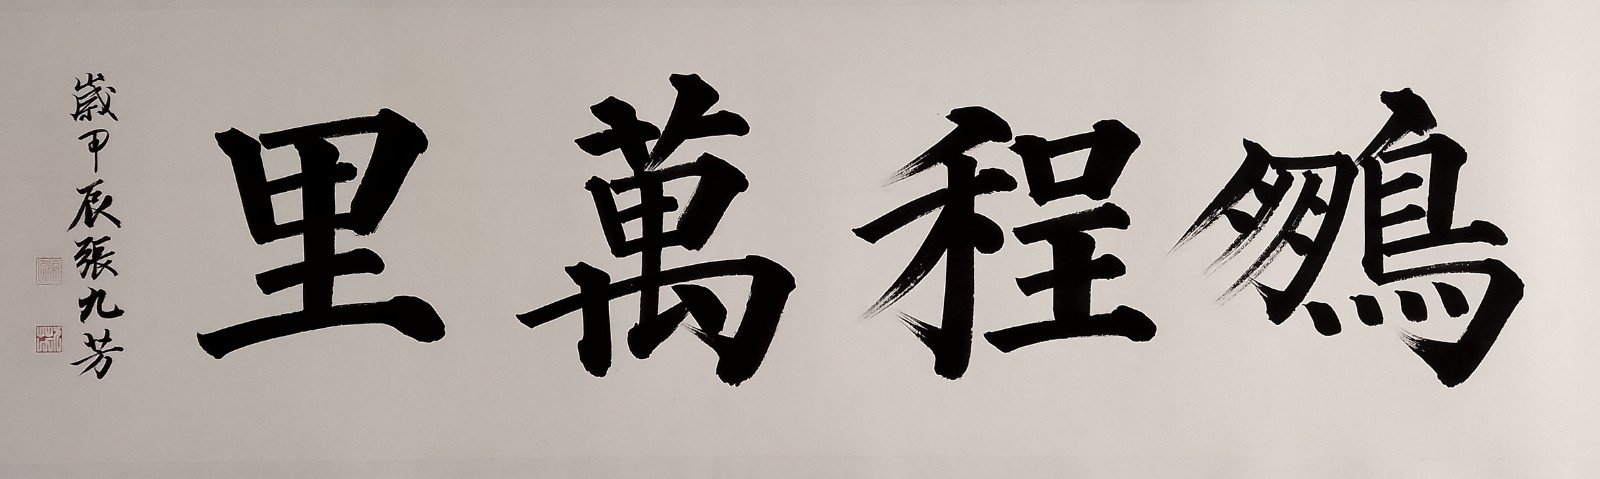 鵬程萬里
歲甲辰張九芳